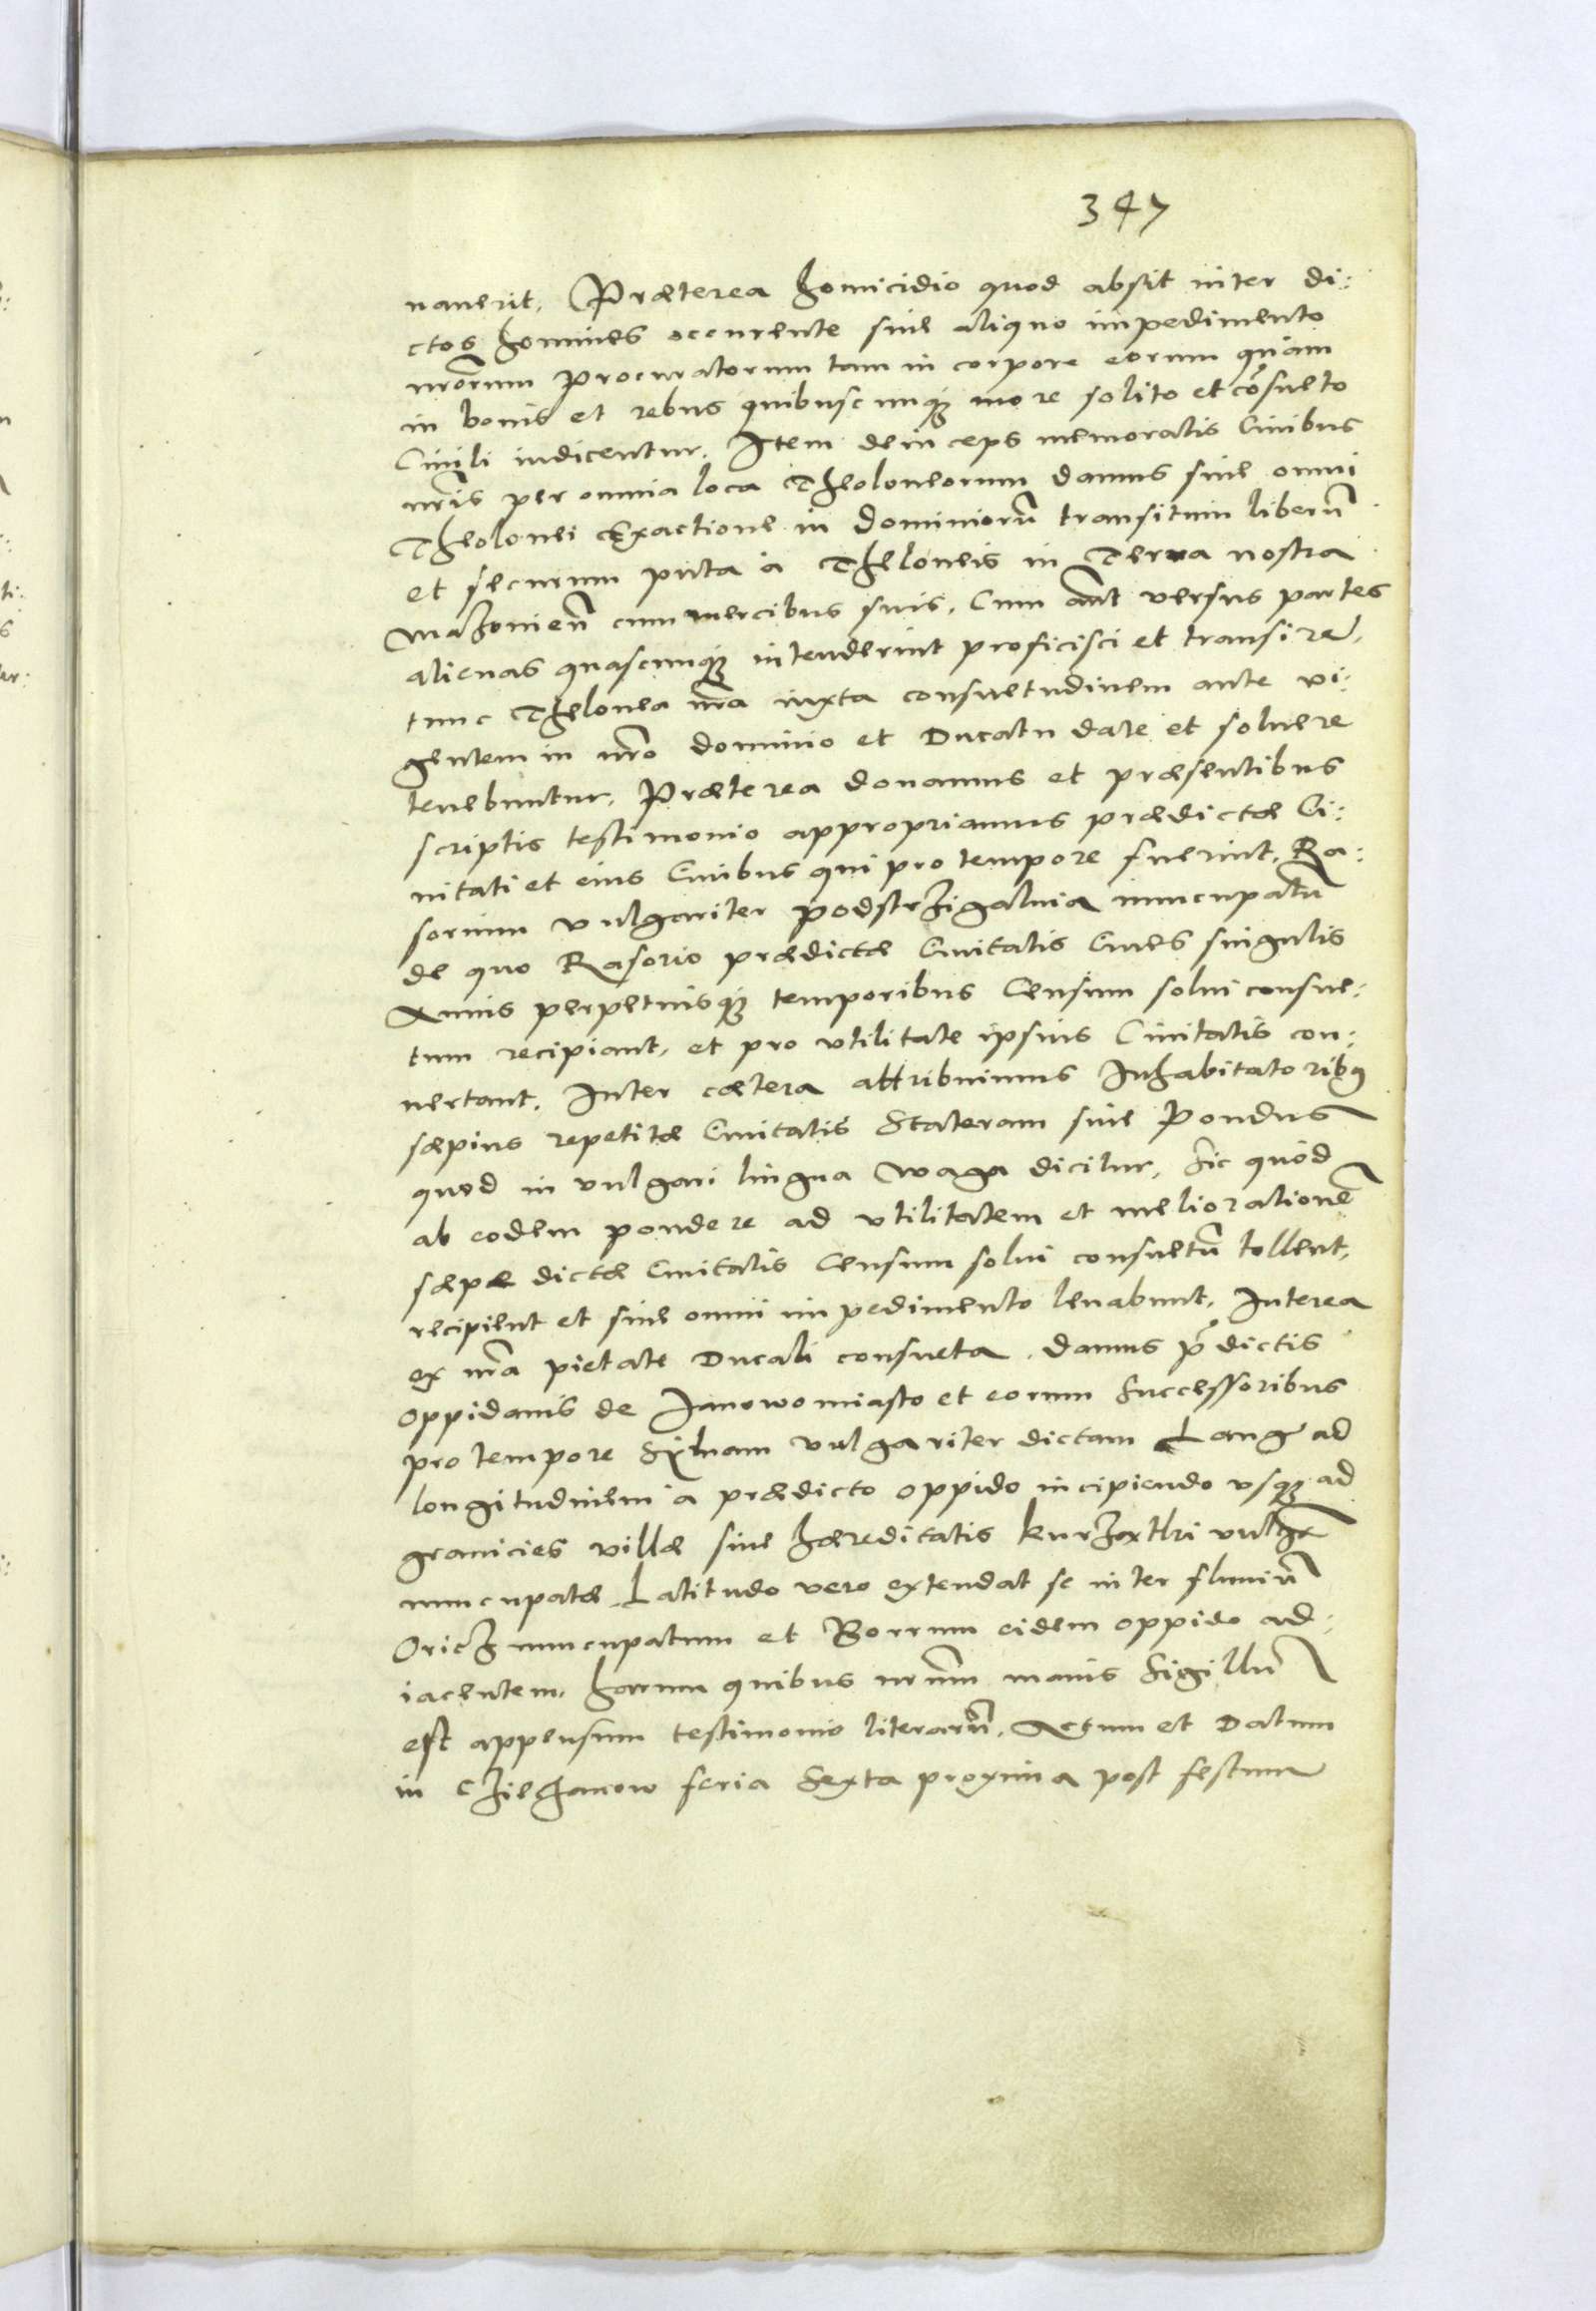 347
nauerit. Præterea homicidio quod absit inter di:
ctos homines occurente siue aliquo impedimento
nrõrum Procuratorum tam in corpore eorum quàm
in bonis et rebus quibuscunq; more solito et cõsueto
Ciuili iudicentur. Item deinceps memoratis Ciuibus
nr̃is per omnia loca Theoloneorum damus siue omni
Theolonei Exactione in Dominiorũ transitum liberũ
et securum puta à Theloneis in Terra nostra
Mazouien̄ cum mercibus suis. Cum aũt versus partes
alienas quascunq; intenderint proficisci et transire,
tunc Thelonea nr̃a iuxta consuetudinem ante vi:
gentem in nr̃o dominio et Ducatu date et soluere
tenebuntur. Præterea donamus et præsentibus
scriptis testimonio appropriamus prædictæ Ci:
uitati et eius Ciuibus qui pro tempore fuerint. Ra:
sorium vulgariter Podstrzigalnia nuncupatũ
de quo Rasorio prædictæ Ciuitatis Ciues singulis
Annis perpetuisq; temporibus Censum solui consue:
tum recipiant, et pro vtilitate ipsius Ciuitatis con:
uertant. Inter cætera attribuimus Inhabitatorib9
sæpius repetitæ Ciuitatis Stateram siue Pondus
quod in vulgari lingua Waga dicitur, Sic quòd
ab eodem pondere ad vtilitatem et melioratione͂
sæpe dictæ Ciuitatis Censum solui consuetũ tollent,
recipient et siue omni impedimento leuabunt. Interea
ex nr̃a pietate Ducali consueta. damus p̃dictis
Oppidanis de Janowo miasto et eorum Successoribus
pro tempore Syluam vulgariter dictam Lang ad
longitudinem à prædicto oppido incipiendo vsq; ad
granicies villæ siue hæreditatis kurzathki vulgr̃
nuncupatæ. Latitudo vero extendat se inter fluuiũ
Oricz nuncupatum et Borrum eidem oppido ad:
iacentem. harum quibus nr̃um maius Sigillũ
est appensum testimonio literarũ. Actum et Datum
in Cziechanow feria Sexta proxima post festum